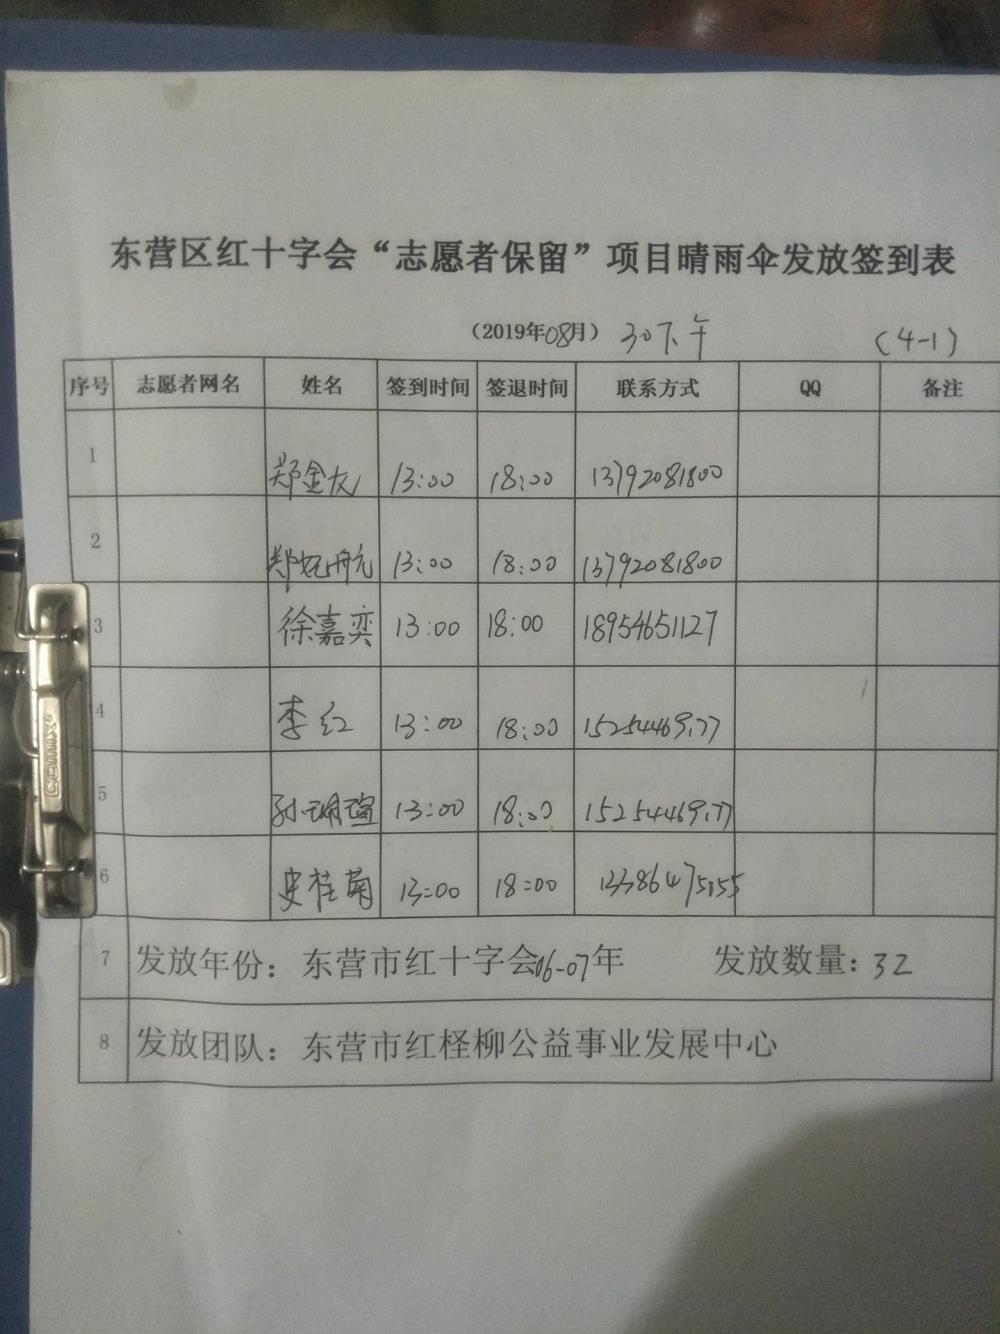 东营区红十字会“志愿者保留”项目晴雨伞发放签到表
（2019年08月）30下午 （4-1）
序号 志愿者网名 姓名 签到时间 签退时间 联系方式 QQ 备注
1 郑金友 13:00 18:00 13792081800
2 郑 航 13:00 18:00 13792081800
3 徐嘉奕 13:00 18:00 18954651127
4 李红 13:00 18:00
5 孙 瑄 13:00 18:00
6 史桂菊 13:00 18:00
7 发放年份：东营市红十字会06-07年 发放数量：32
8 发放团队：东营市红柽柳公益事业发展中心
COMIX